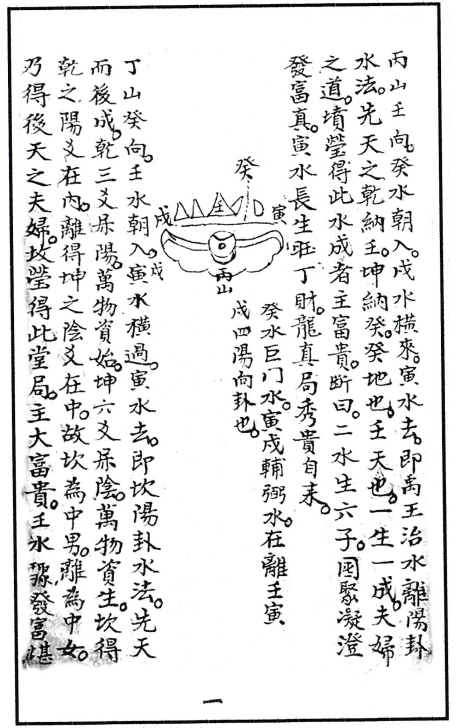 丙山壬向。癸水朝入。戍水橫來。寅水去。即禹王治水離陽卦
水法。先天之乾納壬。坤納癸。癸地也。壬天也。一生一成。夫婦
之道。墳瑩得此水成者主富貴。斷曰。二水生六子。團聚凝澄
發富真。寅水長生旺丁財。龍真局秀貴自来。
癸
壬
寅
戍
丙山
癸水巨门水。寅戍輔弼水。在離壬寅
戍四陽向卦也。
丁山癸向。壬水朝入。寅水橫過。寅水去。即坎陽卦水法。先天
戍
而後成。乾三爻属陽。萬物資始。坤六爻属陰。萬物資生。坎得
乾之陽爻在內。離得坤之陰爻在中。故坎為中男。離為中女。
乃得後天之夫婦。坟瑩得此堂局。主大富貴。壬水發富
一